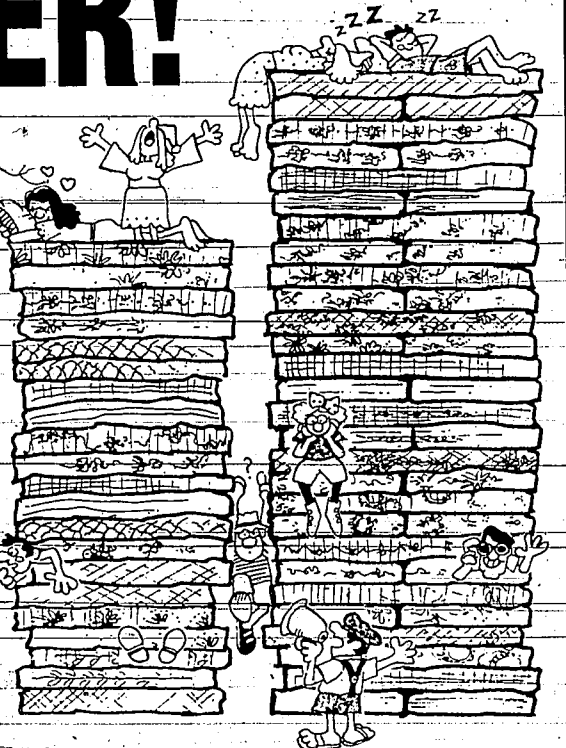 ER!
zZZ ZZ
?